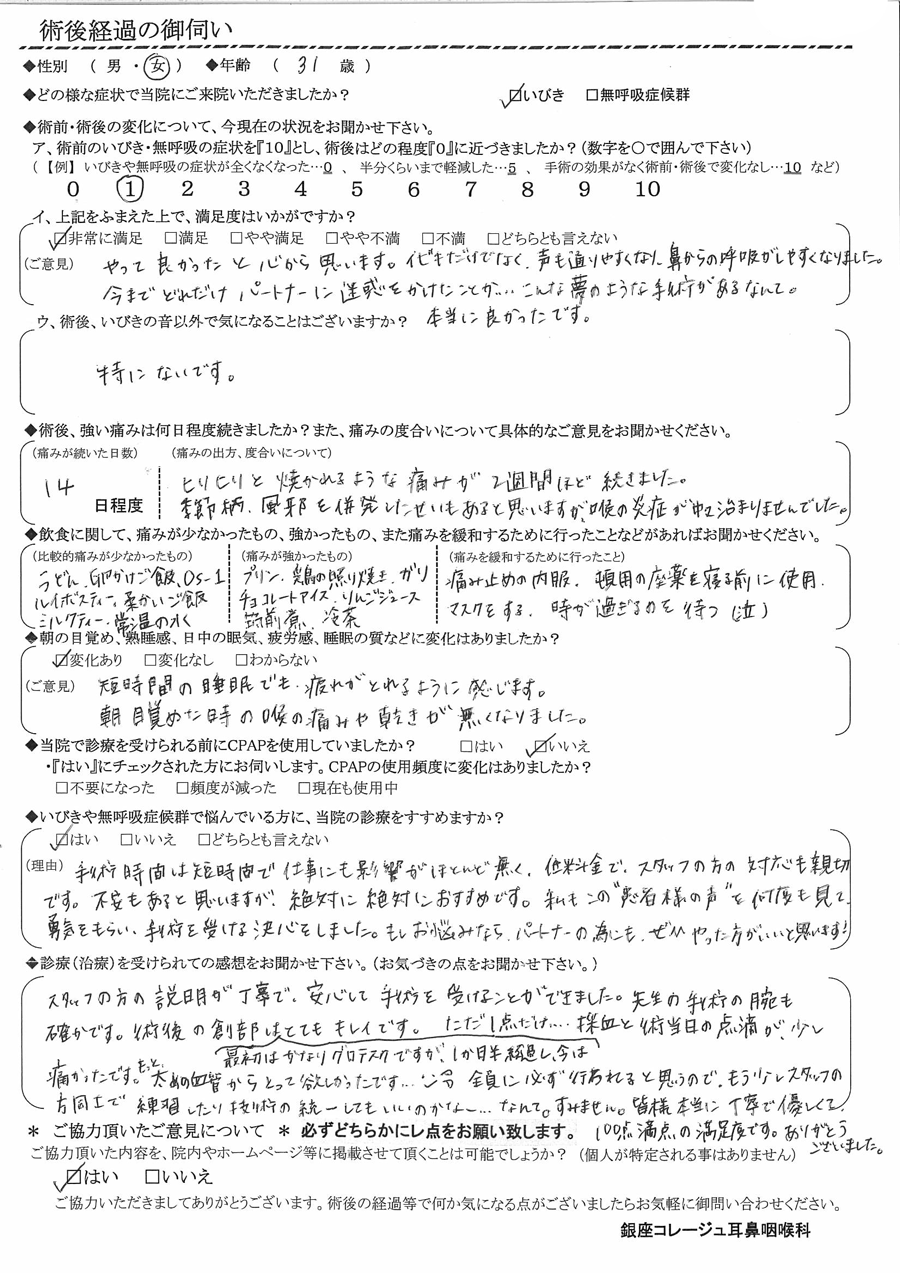 術後経過の御伺い
◆性別　（ 男 ・ 女 ）　◆年齢　（　31　歳 ）
◆どの様な症状で当院にご来院いただきましたか？　☑いびき　□無呼吸症候群
◆術前・術後の変化について、今現在の状況をお聞かせ下さい。
ア、術前のいびき・無呼吸の症状を『10』とし、術後はどの程度『0』に近づきましたか？（数字を○で囲んで下さい）
（ 【例】 いびきや無呼吸の症状が全くなくなった…0　、　半分くらいまで軽減した…5　、　手術の効果がなく術前・術後で変化なし…10　など）
0　1　2　3　4　5　6　7　8　9　10
イ、上記をふまえた上で、満足度はいかがですか？
☑非常に満足　□満足　□やや満足　□やや不満　□不満　□どちらとも言えない
（ご意見）　やって良かったと心から思います。イビキだけでなく、声も通りやすくなり、鼻からの呼吸がしやすくなりました。
今までどれだけパートナーに迷惑をかけたことか… こんな夢のような手術があるなんて。
ウ、術後、いびきの音以外で気になることはございますか？　本当に良かったです。
特にないです。
◆術後、強い痛みは何日程度続きましたか？また、痛みの度合いについて具体的なご意見をお聞かせください。
（痛みが続いた日数）　（痛みの出方、度合いについて）
14 日程度　ヒリヒリと焼かれるような痛みが2週間ほど続きました。
季節柄、風邪を併発したせいもあると思いますが、喉の炎症が中々治まりませんでした。
◆飲食に関して、痛みが少なかったもの、強かったもの、また痛みを緩和するために行ったことなどがあればお聞かせください。
（比較的痛みが少なかったもの）　（痛みが強かったもの）　（痛みを緩和するために行ったこと）
うどん、卵かけご飯、OS-1　プリン、鶏の照り焼き、ガリ　痛み止めの内服、頓用の座薬を寝る前に使用、
ルイボスティー、柔かいご飯　チョコレートアイス、りんごジュース　マスクをする、時が過ぎるのを待つ（泣）
ミルクティー、常温の水　筑前煮、冷茶
◆朝の目覚め、熟睡感、日中の眠気、疲労感、睡眠の質などに変化はありましたか？
☑変化あり　□変化なし　□わからない
（ご意見）　短時間の睡眠でも、疲れがとれるように感じます。
朝目覚めた時の喉の痛みや乾きが無くなりました。
◆当院で診療を受けられる前にCPAPを使用していましたか？　□はい　☑いいえ
・『はい』にチェックされた方にお伺いします。CPAPの使用頻度に変化はありましたか？
□不要になった　□頻度が減った　□現在も使用中
◆いびきや無呼吸症候群で悩んでいる方に、当院の診療をすすめますか？
☑はい　□いいえ　□どちらとも言えない
（理由）　手術時間は短時間で仕事にも影響がほとんど無く、低料金で、スタッフの方の対応も親切
です。不安もあると思いますが、絶対に絶対におすすめです。私もこの“患者様の声”を何度も見て、
勇気をもらい、手術を受ける決心をしました。もしお悩みなら、パートナーの為にも、ぜひやった方がいいと思います！
◆診療（治療）を受けられての感想をお聞かせ下さい。（お気づきの点をお聞かせ下さい。）
スタッフの方の説明が丁寧で、安心して手術を受けることができました。先生の手術の腕も
確かです。術後の創部はとてもキレイです。　ただし1点だけ…. 採血と術当日の点滴が、少し
最初はかなりグロテスクですが、1か月半経過し、今は
痛かったです。もっと、太めの血管からとって欲しかったです… 全員に必ず行われると思うので、もう少しスタッフの
方同士で練習したり技術の統一してもいいのかな〜… なんて。すみません。皆様本当に丁寧で優しくて、
＊ ご協力頂いたご意見について ＊ 必ずどちらかにレ点をお願い致します。　100点満点の満足度です。ありがとう
ございました。
ご協力頂いた内容を、院内やホームページ等に掲載させて頂くことは可能でしょうか？（個人が特定される事はありません）
☑はい　□いいえ
ご協力いただきましてありがとうございます。術後の経過等で何か気になる点がございましたらお気軽に御問い合わせください。
銀座コレージュ耳鼻咽喉科